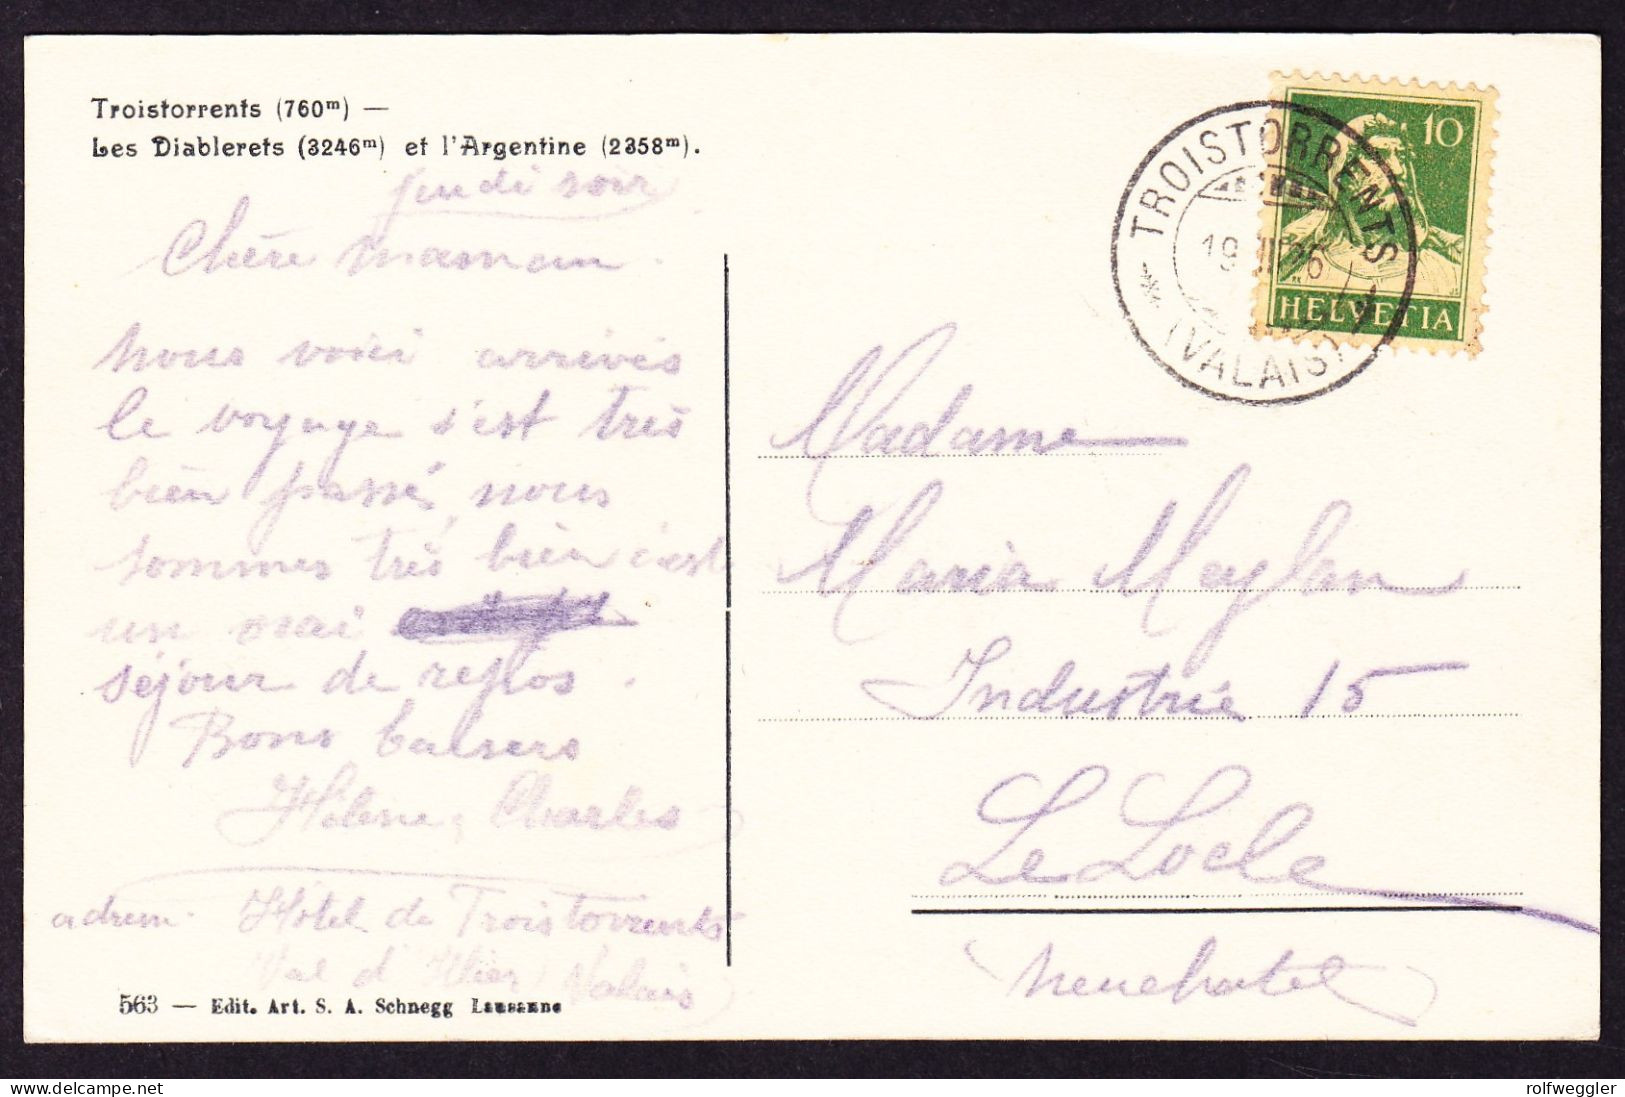 Troistorrents (760m) —
Les Diablerets (3246m) et l'Argentine (2358m).
jeudi soir
Chère maman.
nous voici arrivés
le voyage s'est très
bien passé, nous
sommes très bien c'est
un vrai
séjour de repos.
Bons baisers
Hélène, Charles
Hôtel de Troistorrents
Val d'Illiez, Valais
563 — Edit. Art. S. A. Schnegg Lausanne
10
HELVETIA
TROISTORRENTS
19
(VALAIS)
Madame
Maria Meylan
Industrie 15
Le Locle
(Neuchatel)
delcampe.net
rolfweggler